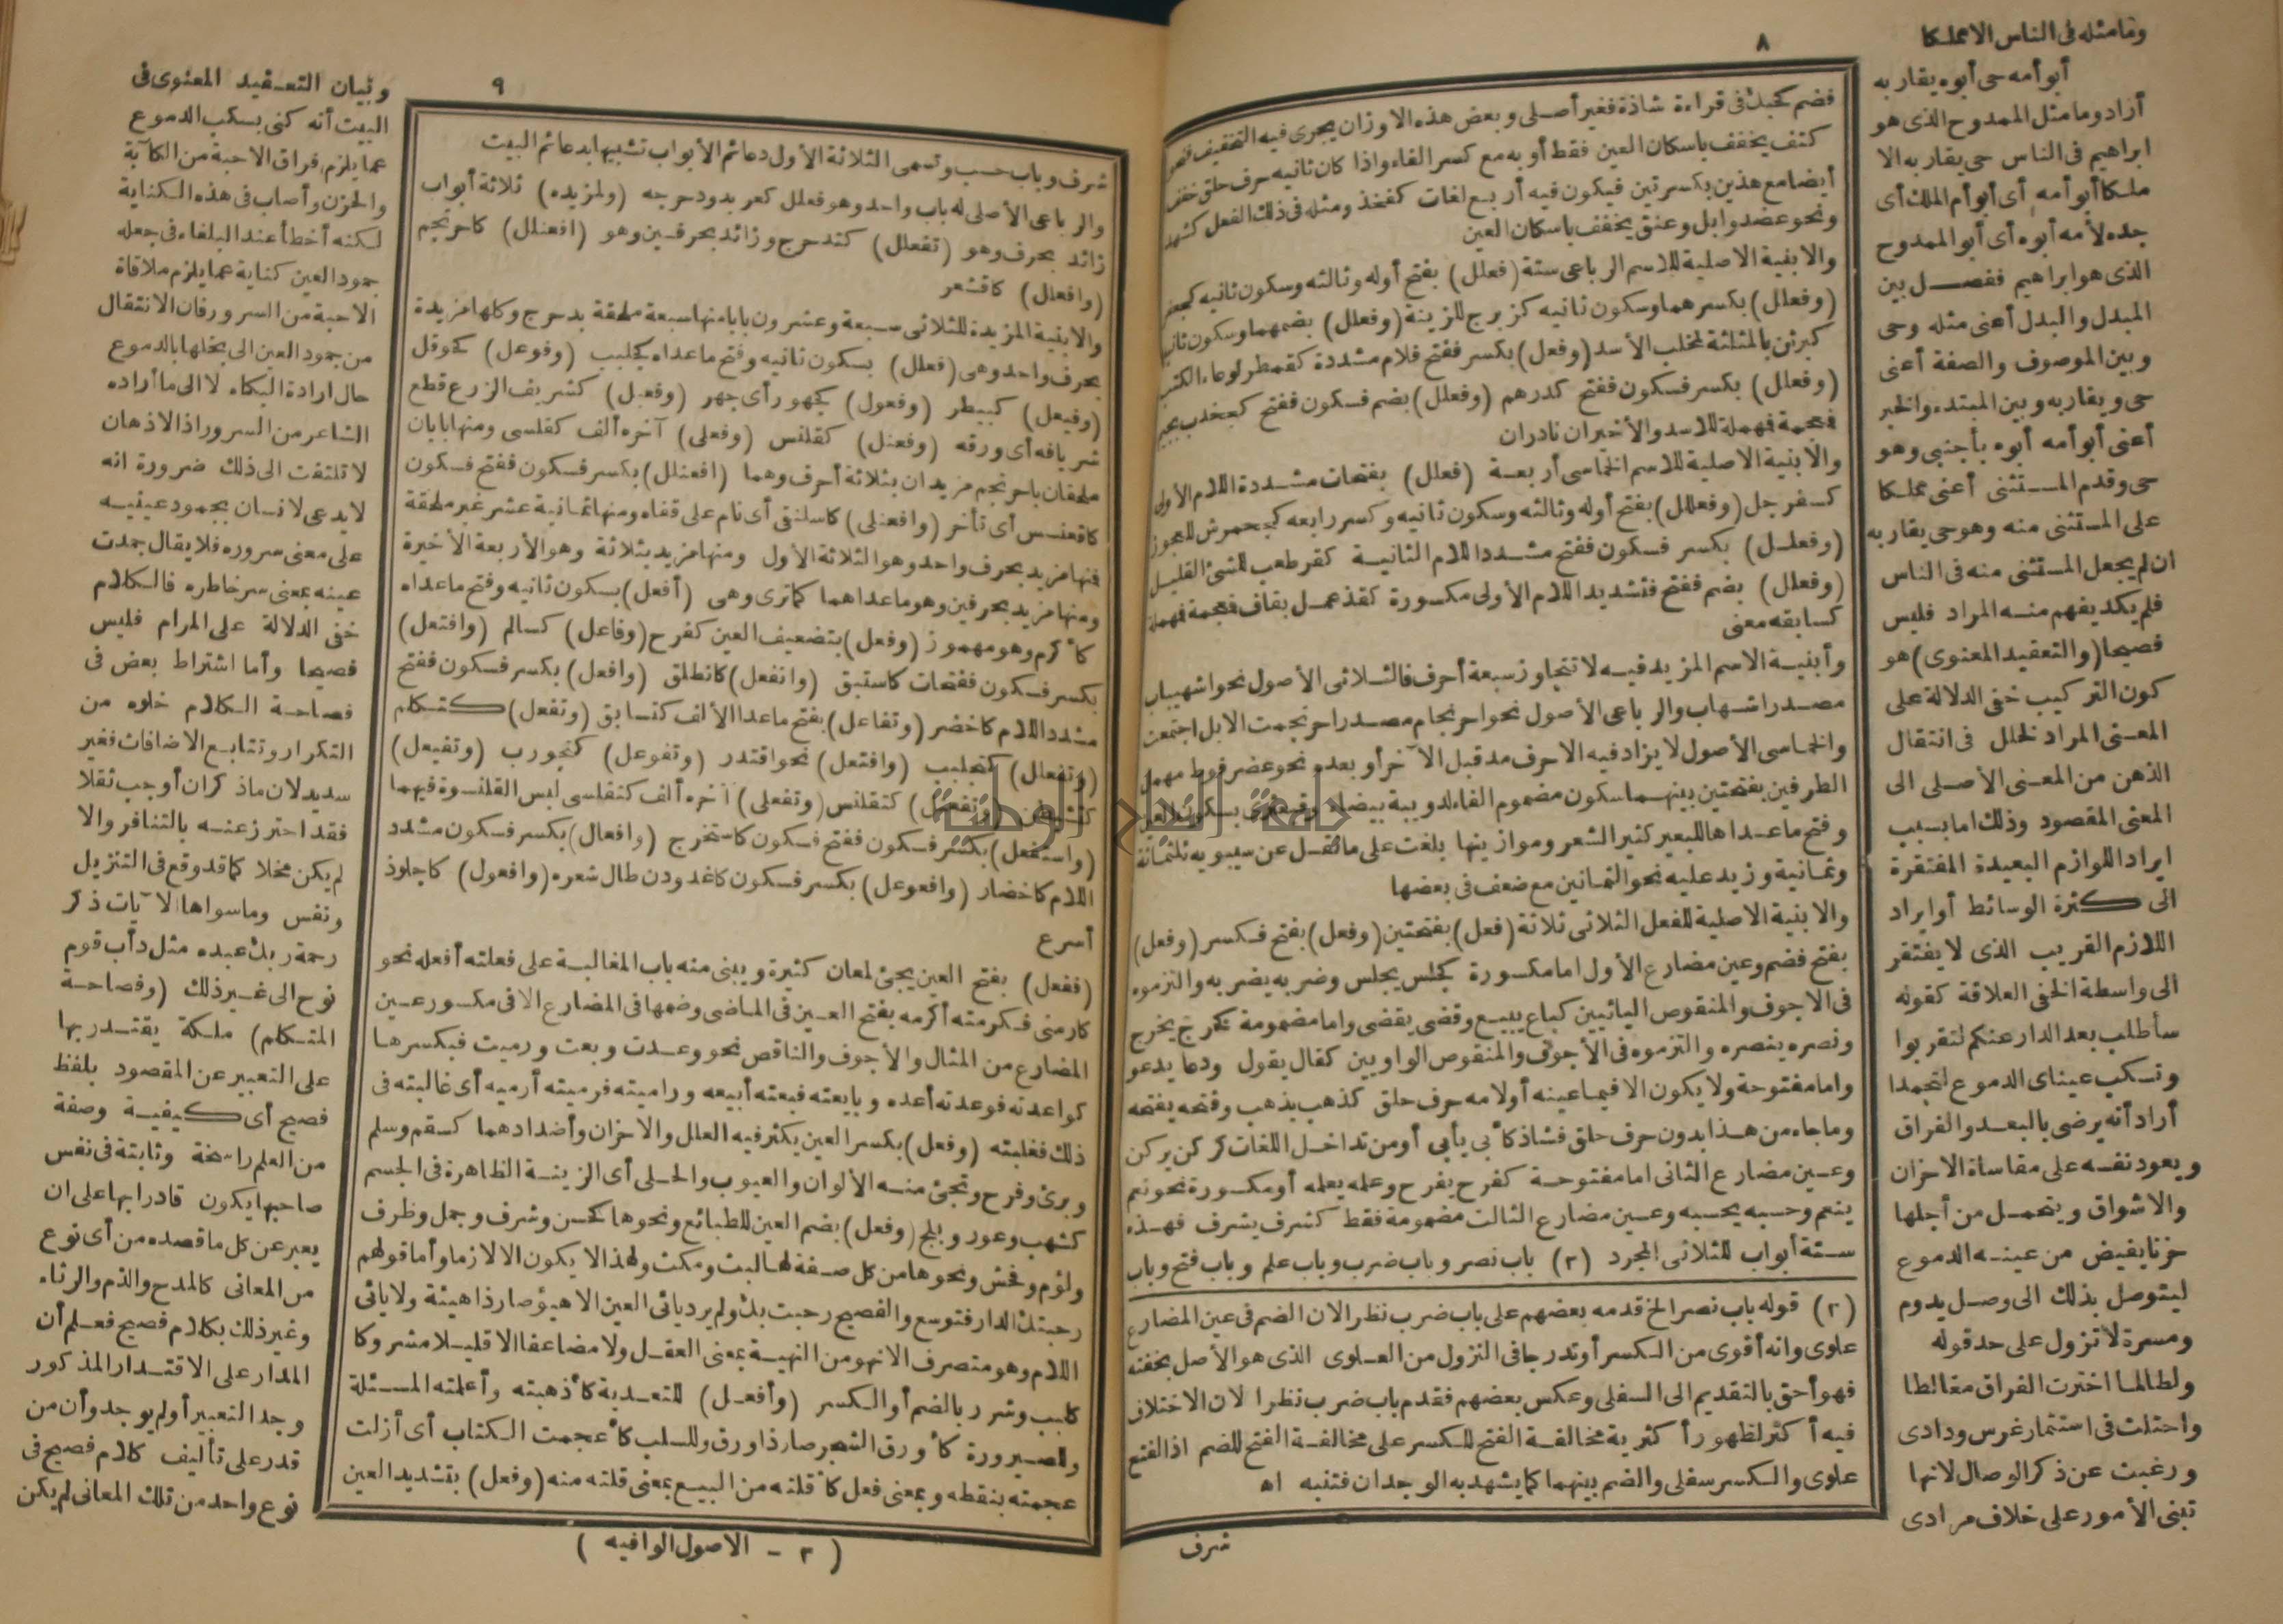 ٨
فضم كحبك فى قراءة شاذة فغير أصلى وبعض هذه الاوزان يجرى فيه التخفيف فنحو
كتف يخفف باسكان العين فقط أو به مع كسر الفاء واذا كان ثانيه حرف حلق خفف
أيضا مع هذين بكسرتين فيكون فيه أربع لغات كفخذ ومثله فى ذلك الفعل كشهد
ونحو عضد وابل وعنق يخفف باسكان العين
والابنية الاصلية للاسم الرباعى ستة (فعلل) بفتح أوله وثالثه وسكون ثانيه كجعفر
(وفعلل) بكسرهما وسكون ثانيه كزبرج للزينة (وفعلل) بضمهما وسكون ثانيه
كبرثن بالمثلثة لمخلب الأسد (وفعل) بكسر ففتح فلام مشددة كقمطر لوعاء الكتب
(وفعلل) بكسر فسكون ففتح كدرهم (وفعلل) بضم فسكون ففتح كجخدب بجيم
فمعجمة فمهملة للاسد والأخيران نادران
والأبنية الاصلية للاسم الخماسى أربعة (فعلل) بفتحات مشددة اللام الأولى
كسفرجل (وفعللل) بفتح أوله وثالثه وسكون ثانيه وكسر رابعه كجحمرش للعجوز
(وفعلل) بكسر فسكون ففتح مشدد اللام الثانية كقرطعب للشئ القليل
(وفعلل) بضم ففتح فتشديد اللام الأولى مكسورة كقذعمل بقاف فمعجمة فمهملة
كسابقه معنى
وأبنية الاسم المزيد فيه لا تتجاوز سبعة أحرف فالثلاثى الأصول نحو اشهيباب
مصدر اشهاب والرباعى الأصول نحو احرنجام مصدر احرنجمت الابل اجتمعت
والخماسى الأصول لا يزاد فيه الا حرف مد قبل الآخر أو بعده نحو عضرفوط مهمل
الطرفين بفتحتين بينهما سكون مضموم الفاء لدويبة بيضاء وقبعثرى بسكون العين
وفتح ما عداها للبعير كثير الشعر وموازينها بلغت على ما نقل عن سيبويه ثلثمائة
وثمانية وزيد عليه نحو الثمانين مع ضعف فى بعضها
والابنية الاصلية للفعل الثلاثى ثلاثة (فعل) بفتحتين (وفعل) بفتح فكسر (وفعل)
بفتح فضم وعين مضارع الأول اما مكسورة كجلس يجلس وضربه يضربه والتزموه
فى الاجوف والمنقوص اليائيين كباع يبيع وقضى يقضى واما مضمومة كخرج يخرج
ونصره ينصره والتزموه فى الأجوف والمنقوص الواويين كقال يقول ودعا يدعو
واما مفتوحة ولا يكون الا فيما عينه أو لامه حرف حلق كذهب يذهب وفتحه يفتحه
وما جاء من هذا بدون حرف حلق فشاذ كأبى يأبى أو من تداخل اللغات كركن يركن
وعين مضارع الثانى اما مفتوحة كفرح يفرح وعلمه يعلمه أو مكسورة نحو نعم
ينعم وحسبه يحسبه وعين مضارع الثالث مضمومة فقط كشرف يشرف فهذه
ستة أبواب للثلاثى المجرد (٢) باب نصر وباب ضرب وباب علم وباب فتح وباب
(٢) قوله باب نصر الخ قدمه بعضهم على باب ضرب نظرا لان الضم فى عين المضارع
علوى وانه أقوى من الكسر أو تدرجا فى النزول من العلوى الذى هو الأصل بخفته
فهو أحق بالتقديم الى السفلى وعكس بعضهم فقدم باب ضرب نظرا لان الاختلاف
فيه أكثر لظهور أكثرية مخالفة الفتح للكسر على مخالفة الفتح للضم اذ الفتح
علوى والكسر سفلى والضم بينهما كما يشهد به الوجدان فتنبه اه
شرف
وما مثله فى الناس الا مملكا
أبو أمه حى أبوه يقاربه
أراد وما مثل الممدوح الذى هو
ابراهيم فى الناس حى يقاربه الا
ملكا أبو أمه أى أبو أم الملك أى
جده لأمه أبوه أى أبو الممدوح
الذى هو ابراهيم ففصل بين
المبدل والبدل أعنى مثله وحى
وبين الموصوف والصفة أعنى
حى ويقاربه وبين المبتدء والخبر
أعنى أبو أمه أبوه بأجنبى وهو
حى وقدم المستثنى أعنى مملكا
على المستثنى منه وهو حى يقاربه
ان لم يجعل المستثنى منه فى الناس
فلم يكد يفهم منه المراد فليس
فصيحا (والتعقيد المعنوى) هو
كون التركيب خفى الدلالة على
المعنى المراد لخلل فى انتقال
الذهن من المعنى الأصلى الى
المعنى المقصود وذلك اما بسبب
ايراد اللوازم البعيدة المفتقرة
الى كثرة الوسائط أو ايراد
اللازم القريب الذى لا يفتقر
الى واسطة الخفى العلاقة كقوله
سأطلب بعد الدار عنكم لتقربوا
وتسكب عيناى الدموع لتجمدا
أراد أنه يرضى بالبعد والفراق
ويعود نفسه على مقاساة الاحزان
والاشواق ويتحمل من أجلها
حزنا يفيض من عينه الدموع
ليتوصل بذلك الى وصل يدوم
ومسرة لا تزول على حد قوله
ولطالما اخترت الفراق مغالطا
واحتلت فى استثمار غرس ودادى
ورغبت عن ذكر الوصال لانها
تبنى الأمور على خلاف مرادى
٩
شرف وباب حسب وتسمى الثلاثة الأول دعائم الأبواب تشبيها بدعائم البيت
والرباعى الأصلى له باب واحد وهو فعلل كعربد ودحرجه (ولمزيده) ثلاثة أبواب
زائد بحرف وهو (تفعلل) كتدحرج وزائد بحرفين وهو (افعنلل) كاحرنجم
(وافعلل) كاقشعر
والابنية المزيدة للثلاثى سبعة وعشرون بابا منها سبعة ملحقة بدحرج وكلها مزيدة
بحرف واحد وهى (فعلل) بسكون ثانيه وفتح ما عداه كجلبب (وفوعل) كحوقل
(وفيعل) كبيطر (وفعول) كجهور أى جهر (وفعيل) كشريف الزرع قطع
شريافه أى ورقه (وفعنل) كقلنس (وفعلى) آخره ألف كقلسى ومنها بابان
ملحقان باحرنجم مزيدان بثلاثة أحرف وهما (افعنلل) بكسر فسكون ففتح فسكون
كاقعنسس أى تأخر (وافعنلى) كاسلنقى أى نام على قفاه ومنها ثمانية عشر غير ملحقة
فمنها مزيد بحرف واحد وهو الثلاثة الأول ومنها مزيد بثلاثة وهو الأربعة الأخيرة
ومنها مزيد بحرفين وهو ما عداهما كما ترى وهى (أفعل) بسكون ثانيه وفتح ما عداه
كأكرم وهو مهموز (وفعل) بتضعيف العين كفرح (وفاعل) كسالم (وافتعل)
بكسر فسكون ففتحات كاستبق (وانفعل) كانطلق (وافعل) بكسر فسكون ففتح
مشدد اللام كاخضر (وتفاعل) بفتح ما عدا الألف كتسابق (وتفعل) كتكلم
(وتفعلل) كتجلبب (وافتعل) نحو اقتدر (وتفوعل) كتجورب (وتفيعل)
(وتفعنل) كتقلنس (وتفعلى) آخره ألف كتقلسى لبس القلنسوة فيهما
(واستفعل) بكسر فسكون ففتح فسكون كاستخرج (وافعال) بكسر فسكون مشدد
اللام كاخضار (وافعوعل) بكسر فسكون كاغدودن طال شعره (وافعول) كاجلوذ
أسرع
(ففعل) بفتح العين يجئ لمعان كثيرة ويبنى منه باب المغالبة على فعلته أفعله نحو
كارمنى فكرمته أكرمه بفتح العين فى الماضى وضمها فى المضارع الا فى مكسور عين
المضارع من المثال والأجوف والناقص نحو وعدت وبعت ورميت فبكسرها
كواعدته فوعدته أعده وبايعته فبعته أبيعه وراميته فرميته أرميه أى غالبته فى
ذلك فغلبته (وفعل) بكسر العين يكثر فيه العلل والاحزان وأضدادهما كسقم وسلم
وبرئ وفرح وتجئ منه الألوان والعيوب والحلى أى الزينة الظاهرة فى الجسم
كشهب وعور وبلج (وفعل) بضم العين للطبائع ونحوها كحسن وشرف وجمل وظرف
ولؤم وفحش ونحوها من كل صفة لها لبث ومكث ولهذا لا يكون الا لازما وأما قولهم
رحبتك الدار فتوسع والفصيح رحبت بك ولم يرد يائى العين الا هيؤ صار ذا هيئة ولا يائى
اللام وهو متصرف الا نهو من النهية بمعنى العقل ولا مضاعفا الا قليلا مشروكا
كلبب وشرر بالضم أو الكسر (وأفعل) للتعدية كأذهبته وأعلمته المسئلة
والصيرورة كأورق الشجر صار ذا ورق وللسلب كأعجمت الكتاب أى أزلت
عجمته بنقطه وبمعنى فعل كأقلته من البيع بمعنى قلته منه (وفعل) بتشديد العين
(٢ - الاصول الوافيه)
وبيان التعقيد المعنوى فى
البيت أنه كنى بسكب الدموع
عما يلزم فراق الاحبة من الكآبة
والحزن وأصاب فى هذه الكناية
لكنه أخطأ عند البلغاء فى جعله
جمود العين كناية عما يلزم ملاقاة
الاحبة من السرور فان الانتقال
من جمود العين الى بخلها بالدموع
حال ارادة البكاء لا الى ما أراده
الشاعر من السرور اذ الاذهان
لا تلتفت الى ذلك ضرورة انه
لا يدعى لانسان بجمود عينيه
على معنى سروره فلا يقال جمدت
عينه بمعنى سر خاطره فالكلام
خفى الدلالة على المرام فليس
فصيحا وأما اشتراط بعض فى
فصاحة الكلام خلوه من
التكرار وتتابع الاضافات فغير
سديد لان ما ذكر ان أوجب ثقلا
فقد احترز عنه بالتنافر والا
لم يكن مخلا كما قد وقع فى التنزيل
ونفس وما سواها الآيات ذكر
رحمة ربك عبده مثل دأب قوم
نوح الى غير ذلك (وفصاحة
المتكلم) ملكة يقتدر بها
على التعبير عن المقصود بلفظ
فصيح أى كيفية وصفة
من العلم راسخة وثابتة فى نفس
صاحبها يكون قادرا بها على ان
يعبر عن كل ما قصده من أى نوع
من المعانى كالمدح والذم والرثاء
وغير ذلك بكلام فصيح فعلم أن
المدار على الاقتدار المذكور
وجد التعبير أو لم يوجد وأن من
قدر على تأليف كلام فصيح فى
نوع واحد من تلك المعانى لم يكن
جامعة النجاح الوطنية